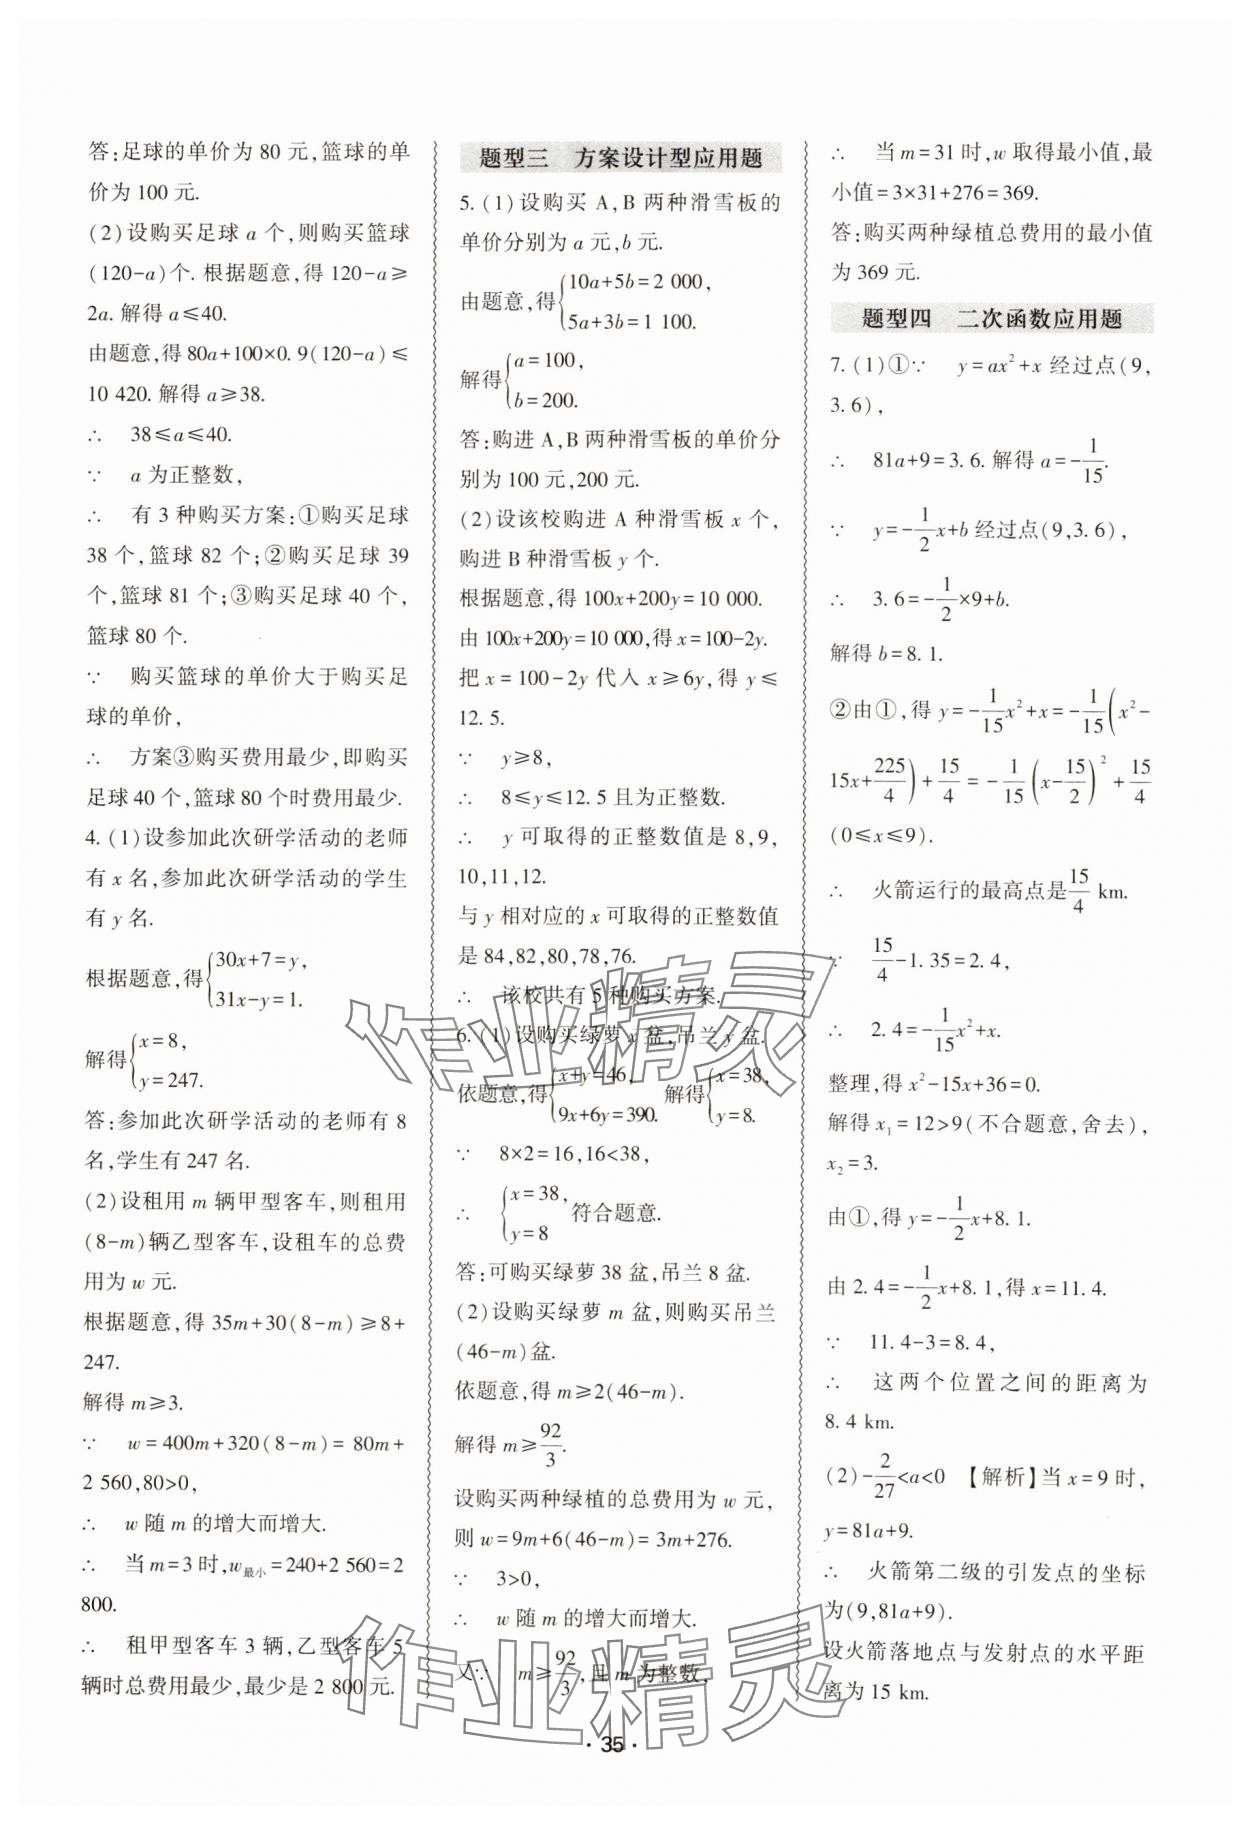 答:足球的单价为 80 元,篮球的单
价为 100 元.
(2)设购买足球 a 个,则购买篮球
(120-a)个. 根据题意,得 120-a≥
2a. 解得 a≤40.
由题意,得 80a+100×0. 9(120-a)≤
10 420. 解得 a≥38.
∴ 38≤a≤40.
∵ a 为正整数,
∴ 有 3 种购买方案:①购买足球
38 个,篮球 82 个;②购买足球 39
个,篮球 81 个;③购买足球 40 个,
篮球 80 个.
∵ 购买篮球的单价大于购买足
球的单价,
∴ 方案③购买费用最少,即购买
足球 40 个,篮球 80 个时费用最少.
4. (1)设参加此次研学活动的老师
有 x 名,参加此次研学活动的学生
有 y 名.
根据题意,得{30x+7=y,
31x-y=1.
解得{x=8,
y=247.
答:参加此次研学活动的老师有 8
名,学生有 247 名.
(2)设租用 m 辆甲型客车,则租用
(8-m)辆乙型客车,设租车的总费
用为 w 元.
根据题意,得 35m+30(8-m)≥8+
247.
解得 m≥3.
∵ w=400m+320(8-m)=80m+
2 560,80>0,
∴ w 随 m 的增大而增大.
∴ 当 m=3 时,w最小=240+2 560=2
800.
∴ 租甲型客车 3 辆,乙型客车 5
辆时总费用最少,最少是 2 800 元.
题型三 方案设计型应用题
5. (1)设购买 A,B 两种滑雪板的
单价分别为 a 元,b 元.
由题意,得{10a+5b=2 000,
5a+3b=1 100.
解得{a=100,
b=200.
答:购进 A,B 两种滑雪板的单价分
别为 100 元,200 元.
(2)设该校购进 A 种滑雪板 x 个,
购进 B 种滑雪板 y 个.
根据题意,得 100x+200y=10 000.
由 100x+200y=10 000,得 x=100-2y.
把 x=100-2y 代入 x≥6y,得 y≤
12. 5.
∵ y≥8,
∴ 8≤y≤12. 5 且为正整数.
∴ y 可取得的正整数值是 8,9,
10,11,12.
与 y 相对应的 x 可取得的正整数值
是 84,82,80,78,76.
∴ 该校共有 5 种购买方案.
6. (1)设购买绿萝 x 盆,吊兰 y 盆.
依题意,得{x+y=46, 9x+6y=390. 解得{x=38, y=8.
∵ 8×2=16,16<38,
∴ {x=38, y=8 符合题意.
答:可购买绿萝 38 盆,吊兰 8 盆.
(2)设购买绿萝 m 盆,则购买吊兰
(46-m)盆.
依题意,得 m≥2(46-m).
解得 m≥92/3.
设购买两种绿植的总费用为 w 元,
则 w=9m+6(46-m)=3m+276.
∵ 3>0,
∴ w 随 m 的增大而增大.
又∵ m≥92/3,且 m 为整数,
∴ 当 m=31 时,w 取得最小值,最
小值=3×31+276=369.
答:购买两种绿植总费用的最小值
为 369 元.
题型四 二次函数应用题
7. (1)①∵ y=ax²+x 经过点(9,
3. 6),
∴ 81a+9=3. 6. 解得 a=-1/15.
∵ y=-1/2x+b 经过点(9,3. 6),
∴ 3. 6=-1/2×9+b.
解得 b=8. 1.
②由①,得 y=-1/15x²+x=-1/15(x²-
15x+225/4)+15/4=-1/15(x-15/2)²+15/4
(0≤x≤9).
∴ 火箭运行的最高点是15/4 km.
∵ 15/4-1. 35=2. 4,
∴ 2. 4=-1/15x²+x.
整理,得 x²-15x+36=0.
解得 x₁=12>9(不合题意,舍去),
x₂=3.
由①,得 y=-1/2x+8. 1.
由 2. 4=-1/2x+8. 1,得 x=11. 4.
∵ 11. 4-3=8. 4,
∴ 这两个位置之间的距离为
8. 4 km.
(2)-2/27<a<0 【解析】当 x=9 时,
y=81a+9.
∴ 火箭第二级的引发点的坐标
为(9,81a+9).
设火箭落地点与发射点的水平距
离为 15 km.
作业精灵
作业精灵
· 35 ·